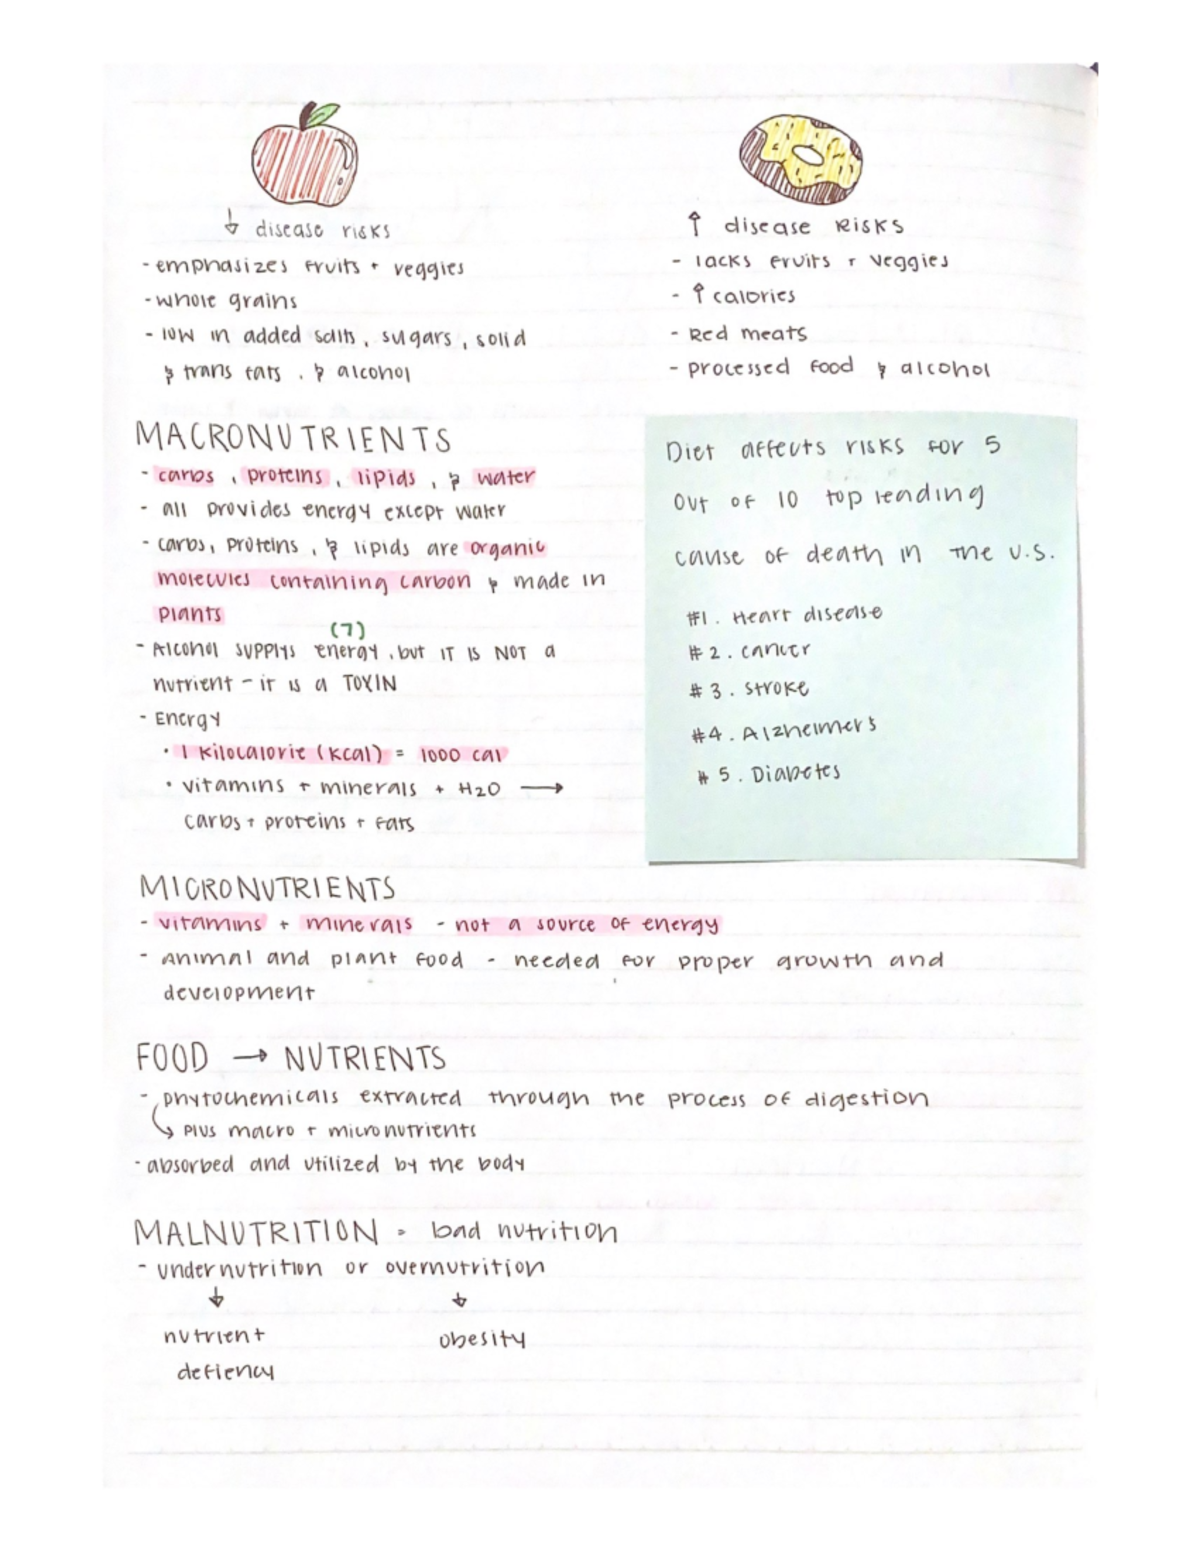 ↓ disease risks
- emphasizes fruits + veggies
- whole grains
- low in added salts, sugars, solid
& trans fats, & alcohol
↑ disease Risks
- lacks fruits + veggies
- ↑ calories
- Red meats
- processed food & alcohol
MACRONUTRIENTS
- carbs, proteins, lipids, & water
- all provides energy except water
- carbs, proteins, & lipids are organic
molecules containing carbon & made in
plants
(7)
- Alcohol supplys energy, but IT IS NOT a
nutrient - it is a TOXIN
- Energy
• 1 kilocalorie (kcal) = 1000 cal
• vitamins + minerals + H2O →
carbs + proteins + fats
Diet affects risks for 5
out of 10 top leading
cause of death in the U.S.
#1. Heart disease
#2. cancer
#3. stroke
#4. Alzheimers
#5. Diabetes
MICRONUTRIENTS
- vitamins + minerals - not a source of energy
- animal and plant food - needed for proper growth and
development
FOOD → NUTRIENTS
- phytochemicals extracted through the process of digestion
↳ plus macro + micronutrients
- absorbed and utilized by the body
MALNUTRITION = bad nutrition
- undernutrition or overnutrition
↓ ↓
nutrient obesity
defiency